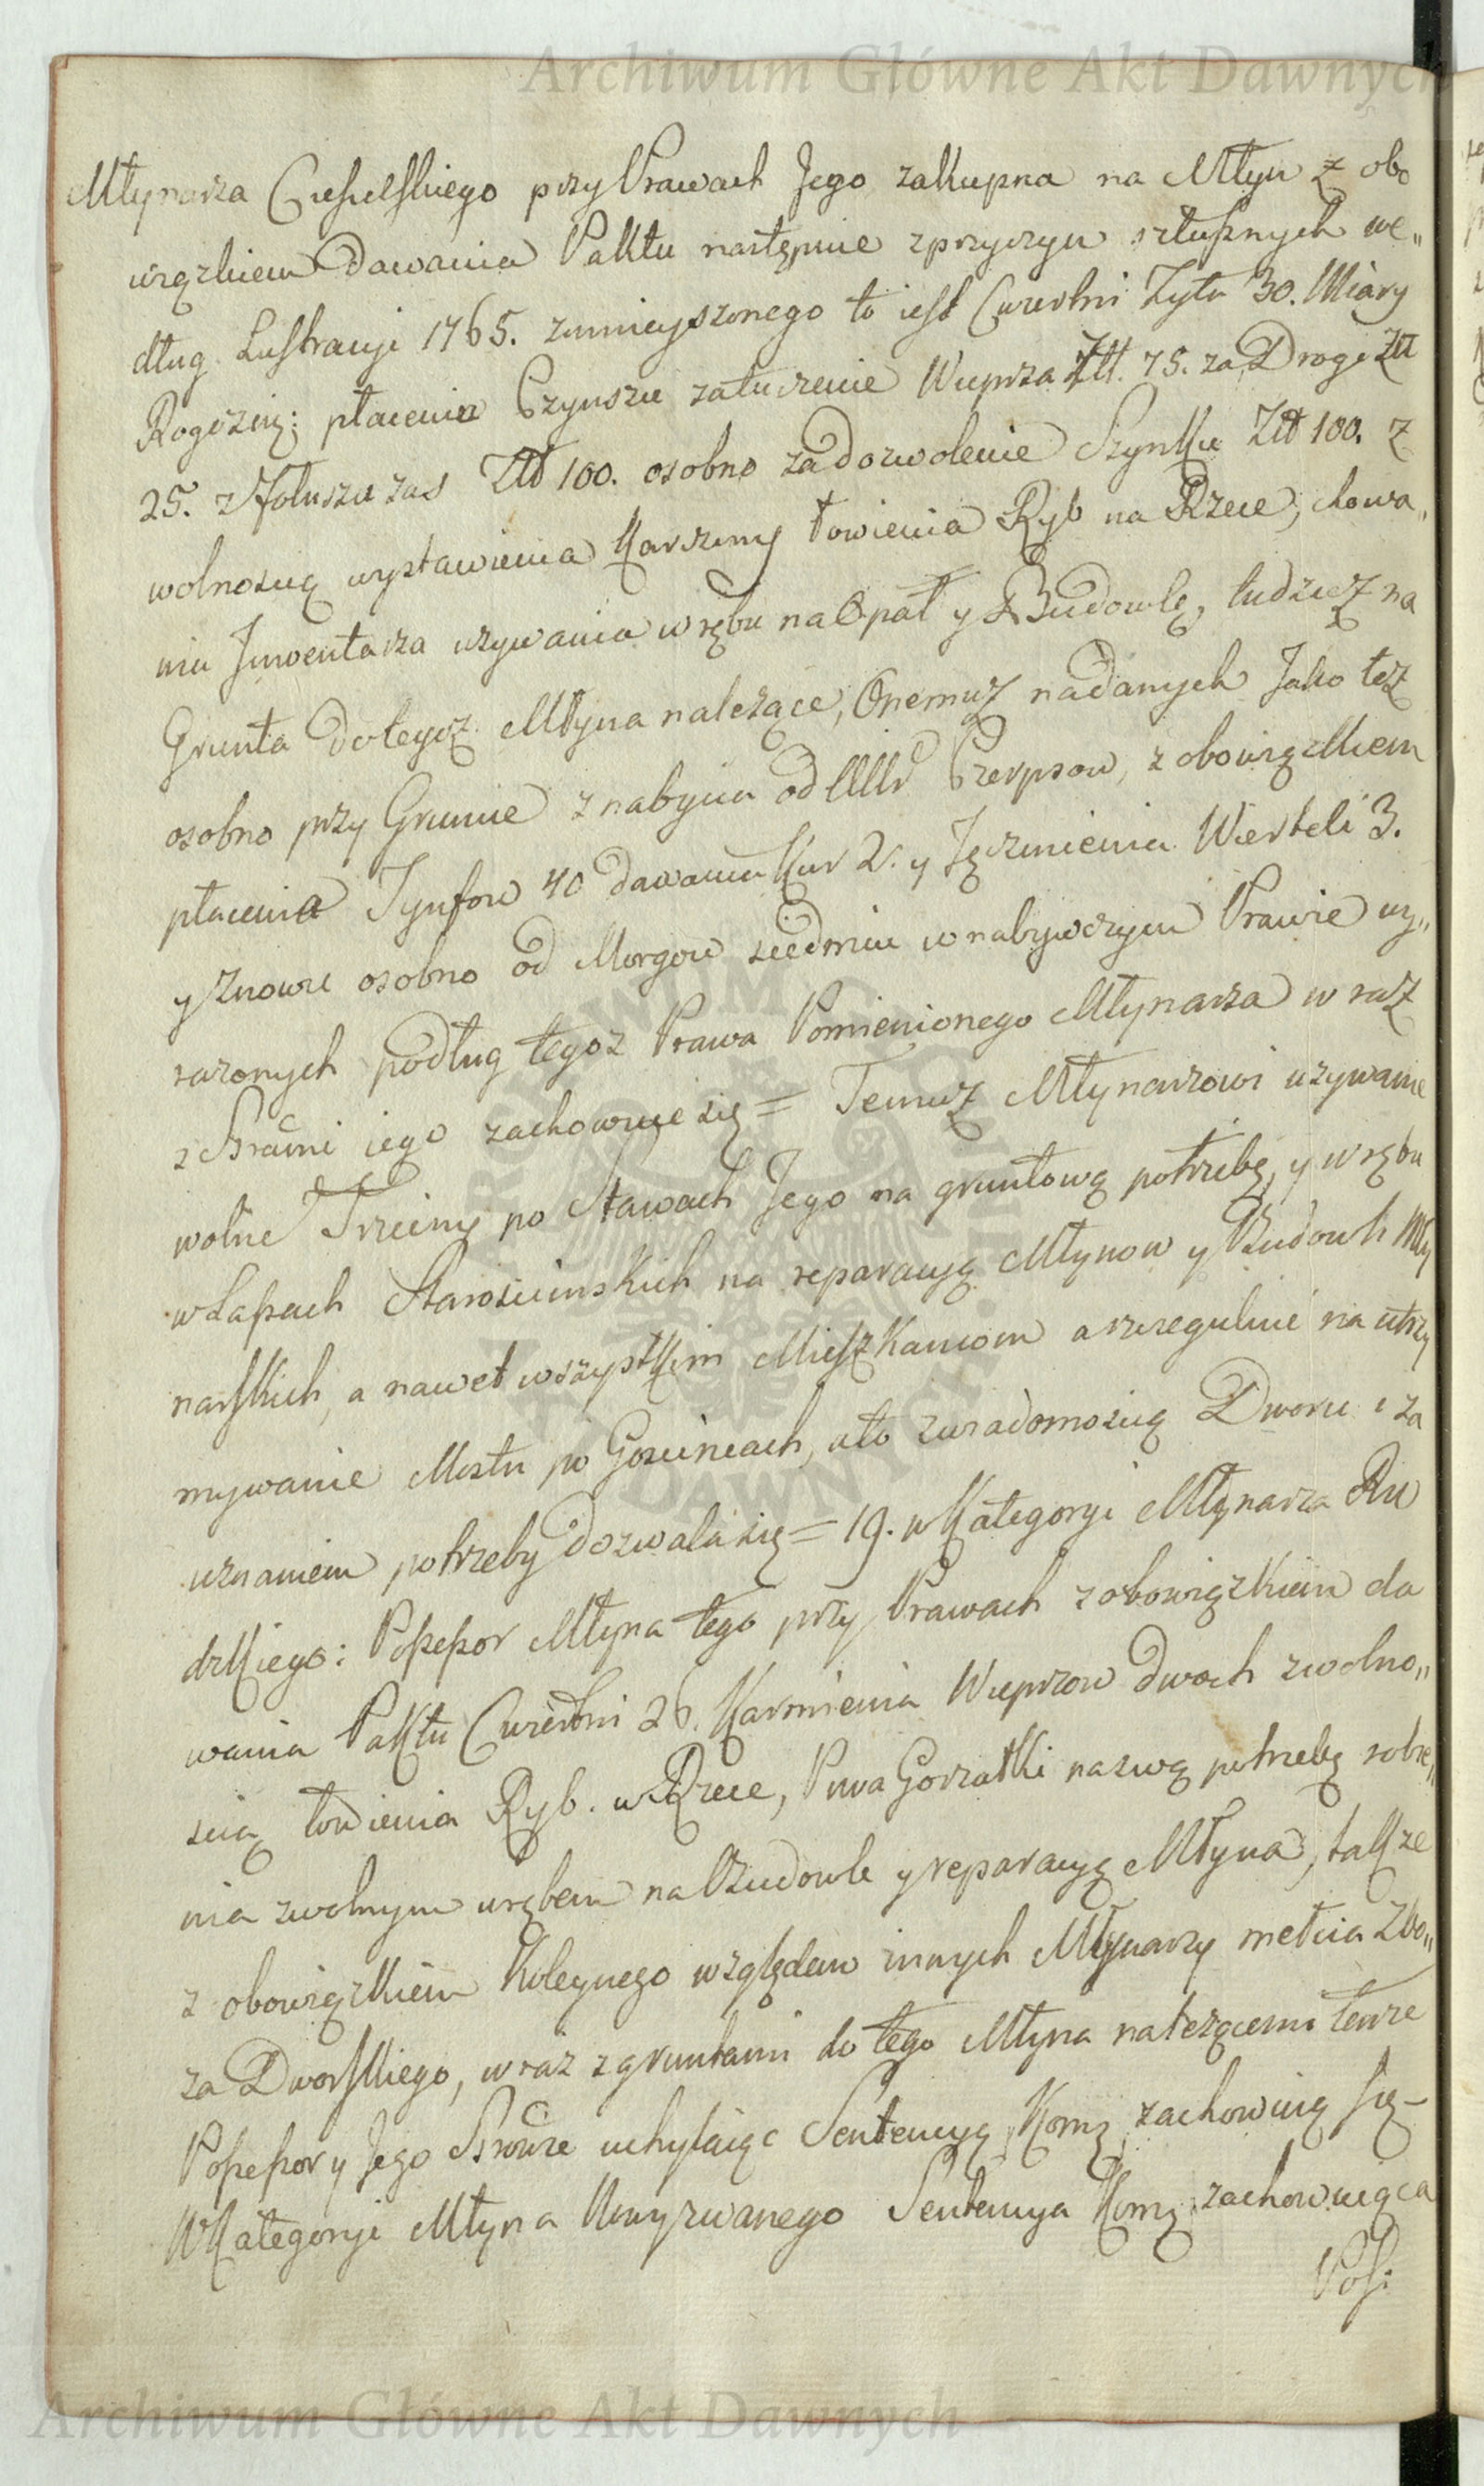 Archiwum Główne Akt Dawnych
Młynarza Ciesielskiego przy Prawach Jego zakupna na Młyn z obo
wiązkiem dawania Paktu następnie z przyczyn słusznych we„
dług Lustracyi 1765. zmnieyszonego to iest Cwiertni Zyta 30. Miary
Rogoziń: płacenia Czynszu za tuczenie Wieprza Złł. 75. za Drogi Złł
25. z Foluszu zas Złł 100. osobno za dozwolenie Szynku Złł 100. z
wolnoscią wystawienia Karczmy łowienia Ryb na Rzece, chowa„
niu Jnwentarza uzywania wrębu na Opał y Budowlę, tudziez na
Grunta do tegoz Młyna nalezące, Onemuz nadanych Jako tez
osobno przy Gruncie z nabycia od Czerpsow, z obowiązkiem
płacenia Tynfow 40 dawania Kur 2. y Jęczmienia Wierteli 3.
y znowu osobno od Morgow siedmiu w nabywczym Prawie wy„
razonych podług tegoz Prawa Pomienionego Młynarza w raz
z Bracmi iego zachowuie się = Temuz Młynarzowi uzywanie
wolne Trzciny po Stawach Jego na gruntową potrzebę, y wrębu
w Lasach Starościnskich na reparacyą Młynow y Budowli Mły
narskich, a nawet wszystkim Mieszkancom a szczegulnie na utrzy
mywanie Mostu po Goscincach, ato z wiadomoscią Dworu i za
uznaniem potrzeby dozwala się = 19. w Kategoryi Młynarza Ru
dzkiego: Possessor Młyna tego przy Prawach z obowiązkiem da
wania Paktu Cwiertni 26. Karmienia Wieprzow dwoch z wolno„
scią łowienia Ryb w Rzece, Piwa Gorzałki na swą potrzebę robie„
nia z wolnym wrębem na Budowle y reparacyę Młyna, takze
z obowiązkiem koleynego względem innych Młynarzy mełcia Zbo„
za Dworskiego, w raz z gruntami do tego Młyna nalezącemi tenze
Possessor y Jego uchylaiąc Sentencyą Komż zachowuią się –
W Kategoryi Młyna Sentencya Komż zachowuiąca
Pos:
Archiwum Główne Akt Dawnych